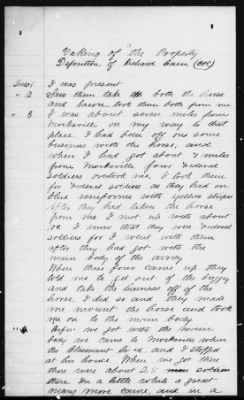 Taking of the Property
Deposition of Richard Cain (Col)
Ques 1 I was present
" 2 I saw them take both the horse
and bacon took them both from me
" 3 I was about seven miles from
Mocksville on my way to that
place. I had been off on some
business with the horse, and
when I had got about 7 miles
from Mocksville four Federal
soldiers overtook me, I took them
for Federal soldiers as they had on
blue uniforms with yellow stripes
after they had taken the horse
from me I met up with about
so I know that they were Federal
soldiers for I went with them
after they had got with the
main body of the army.
When these four came up they
told me to get out of the buggy
and take the harness off of the
horse I did so and they made
me mount the horse and took
me on to the main body.
Before we got with the main
body we came to Mocksville where
the Claimant lived, and I stopped
at his house. When we got there
there were about 25 soldiers
there in a little while a great
many more came, and in a